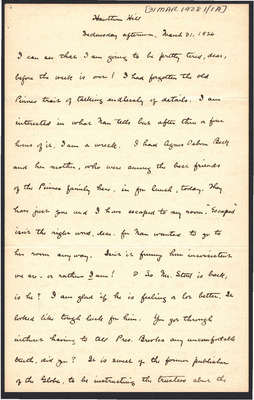 [31 MAR 1928 1/1A]
Hawthorn Hill
Wednesday afternoon, March 31, 1926
I can see that I am going to be pretty tired, dear,
before the week is over! I had forgotten the old
Peirces trait of talking endlessly of details. I am
interested in what Nan tells but after this a few
hours of it, I am a wreck. I had Agnes Osborn Beck
and her mother, who were among the best friends
of the Peirces family here, in for lunch, today. They
have just gone and I have escaped to my room. "Escaped"
isn't the right word, dear, for Nan wanted to go to
her room anyway. Isn't it funny how inconsistent
we are - or rather I am! So Mr. Stout is back,
is he? I am glad if he is feeling a lot better. It
looked like tough luck for him. You got through
without having to tell Pres. Brooks any uncomfortable
truth, did you? It is sweet of the former publisher
of the Globe, to be instructing the trustees about the